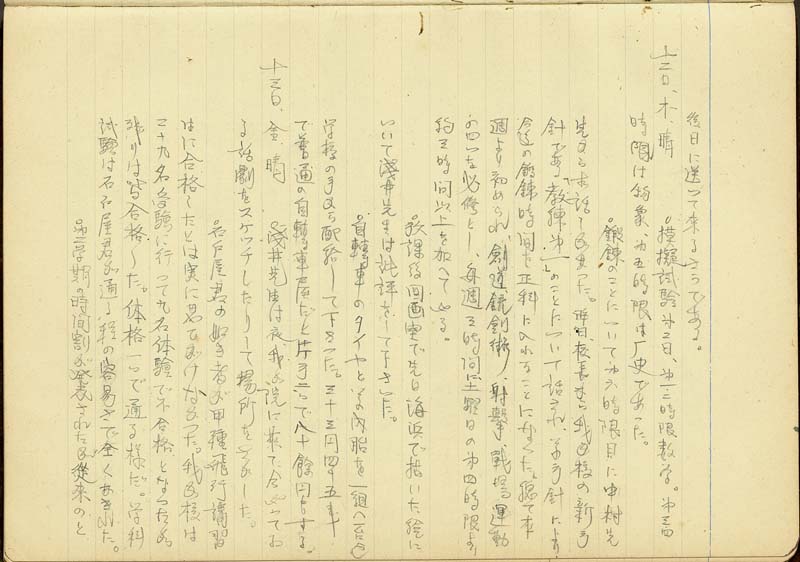 後日に送って来るさうである。
十二日、木、晴 ○模擬試験第二日、第一二時限数学。第三四
時限は物象、第五時限は歴史であった。
○鍛錬のことについて第六時限目に中村先
生からお話があった。昨日校長から我が校の新方
針である「教練第一」のことについて話され、その方針により
今迄の鍛錬時間を正科に入れることになった。
週より初められ、剣道、銃剣術、射撃、戦場運動
の四つを必修とし、毎週三時間に土曜日の第四時限より
約三時間以上を加へてやる。
○放課後図画室で先日海浜で描いた絵に
ついて浅井先生は批評をして下さった。
○自転車のタイヤとその内胎を一組へ一台分
学校の手から配給して下さった。三十三円四十五銭
で普通の自転車屋だと片方二つで八十余円もする。
十三日、金、晴 ○浅井先生は
る話劇をスケッチしたりして場所を
○名古屋君の如き者が甲種飛行講習
生に合格したとは実に
二十九名受験に行って九名体験で不合格となったが
残りは皆合格した。体格一つで通る様だ。学科
試験は名古屋君が通る程の容易さで全くあきれた。
○第二学期の時間割が発表されたが従来のと